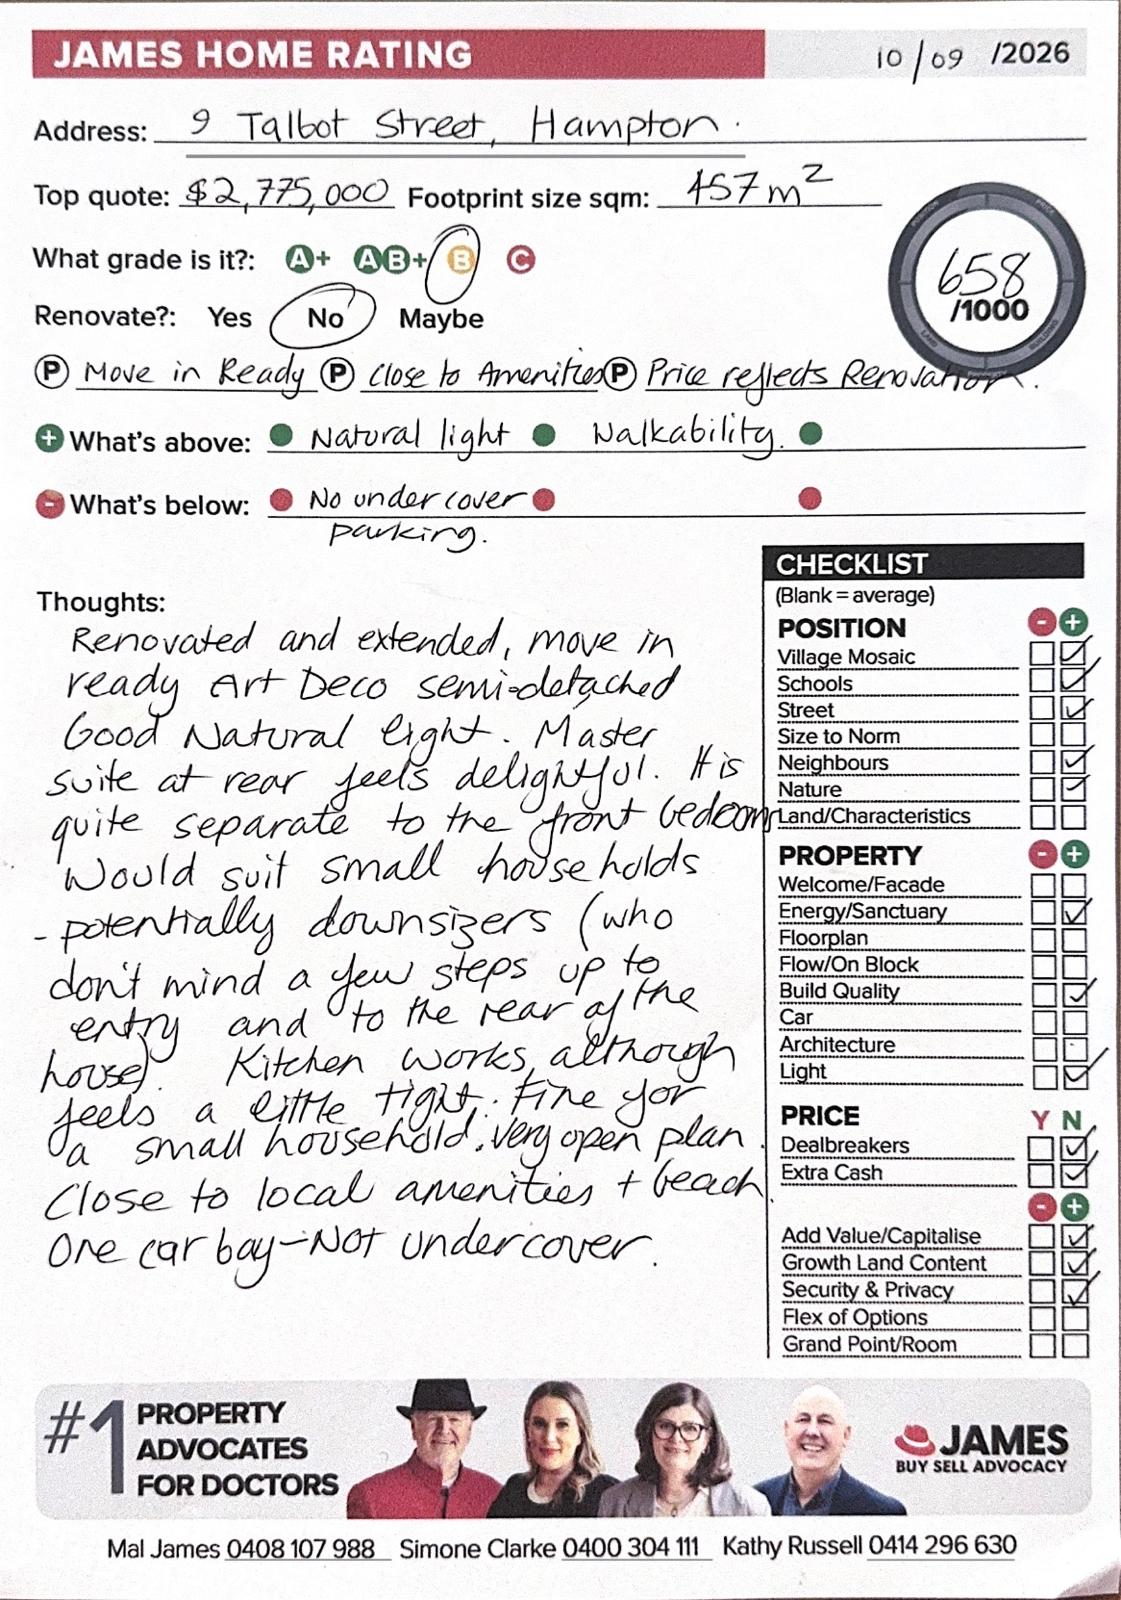 JAMES HOME RATING 10/09 /2026
Address: 9 Talbot Street, Hampton.
Top quote: $2,775,000 Footprint size sqm: 457m²
What grade is it?: A+ AB+ B C
658
/1000
Renovate?: Yes No Maybe
P Move in Ready P Close to Amenities P Price reflects Renovation.
+ What's above: Natural light Walkability.
- What's below: No undercover
parking.
Thoughts:
Renovated and extended, move in
ready Art Deco semi-detached
Good Natural light. Master
suite at rear feels delightful. It is
quite separate to the front bedooms
Would suit small households
- potentially downsizers (who
don't mind a few steps up to
entry and to the rear of the
house). Kitchen works, although
feels a little tight. Fine for
a small household. Very open plan.
Close to local amenities + beach.
One car bay - Not undercover.
CHECKLIST
(Blank = average)
POSITION - +
Village Mosaic
Schools
Street
Size to Norm
Neighbours
Nature
Land/Characteristics
PROPERTY - +
Welcome/Facade
Energy/Sanctuary
Floorplan
Flow/On Block
Build Quality
Car
Architecture
Light
PRICE Y N
Dealbreakers
Extra Cash
- +
Add Value/Capitalise
Growth Land Content
Security & Privacy
Flex of Options
Grand Point/Room
#1 PROPERTY
ADVOCATES
FOR DOCTORS
JAMES
BUY SELL ADVOCACY
Mal James 0408 107 988 Simone Clarke 0400 304 111 Kathy Russell 0414 296 630